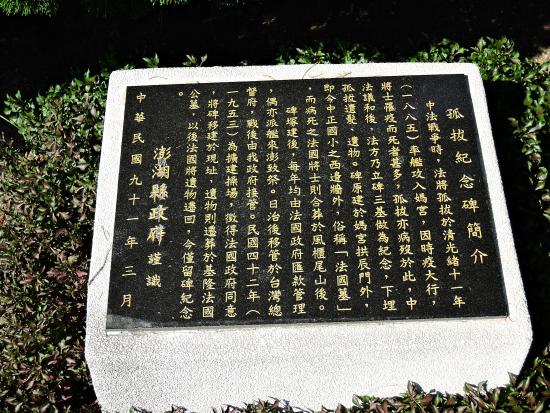 孤拔紀念碑簡介
中法戰爭時，法將孤拔於清光緒十一年
（一八八五）率艦攻入媽宮，因時疫大行，
將士罹疫而死者甚多，孤拔亦病歿於此，中
法議和後，法方乃立碑三基做為紀念，下埋
孤拔遺髮、遺物。碑原建於媽宮拱辰門外
即今中正國小之西邊牆外，俗稱「法國墓」
，而病死之法國將士則合葬於風櫃尾山後。
碑塚建後，每年均由法國政府匯款管理
，偶亦派艦來澎致祭。日治後移管於台灣總
督府，戰後由我政府接管。民國四十二年（
一九五三）為擴建操場，徵得法國政府同意
，將碑移建於現址，遺物則遷葬於基隆法國
公墓，以後法國將遺物遷回，今僅留碑紀念
。
澎湖縣政府謹識
中華民國九十一年三月